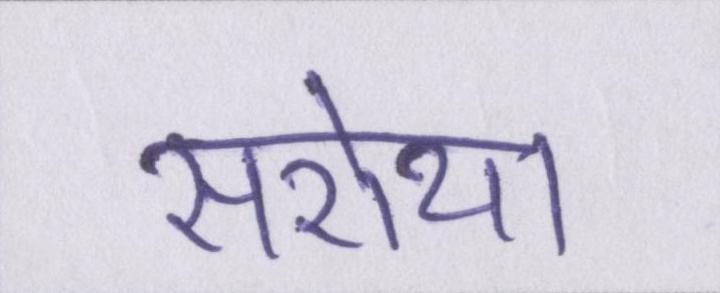 सरोया